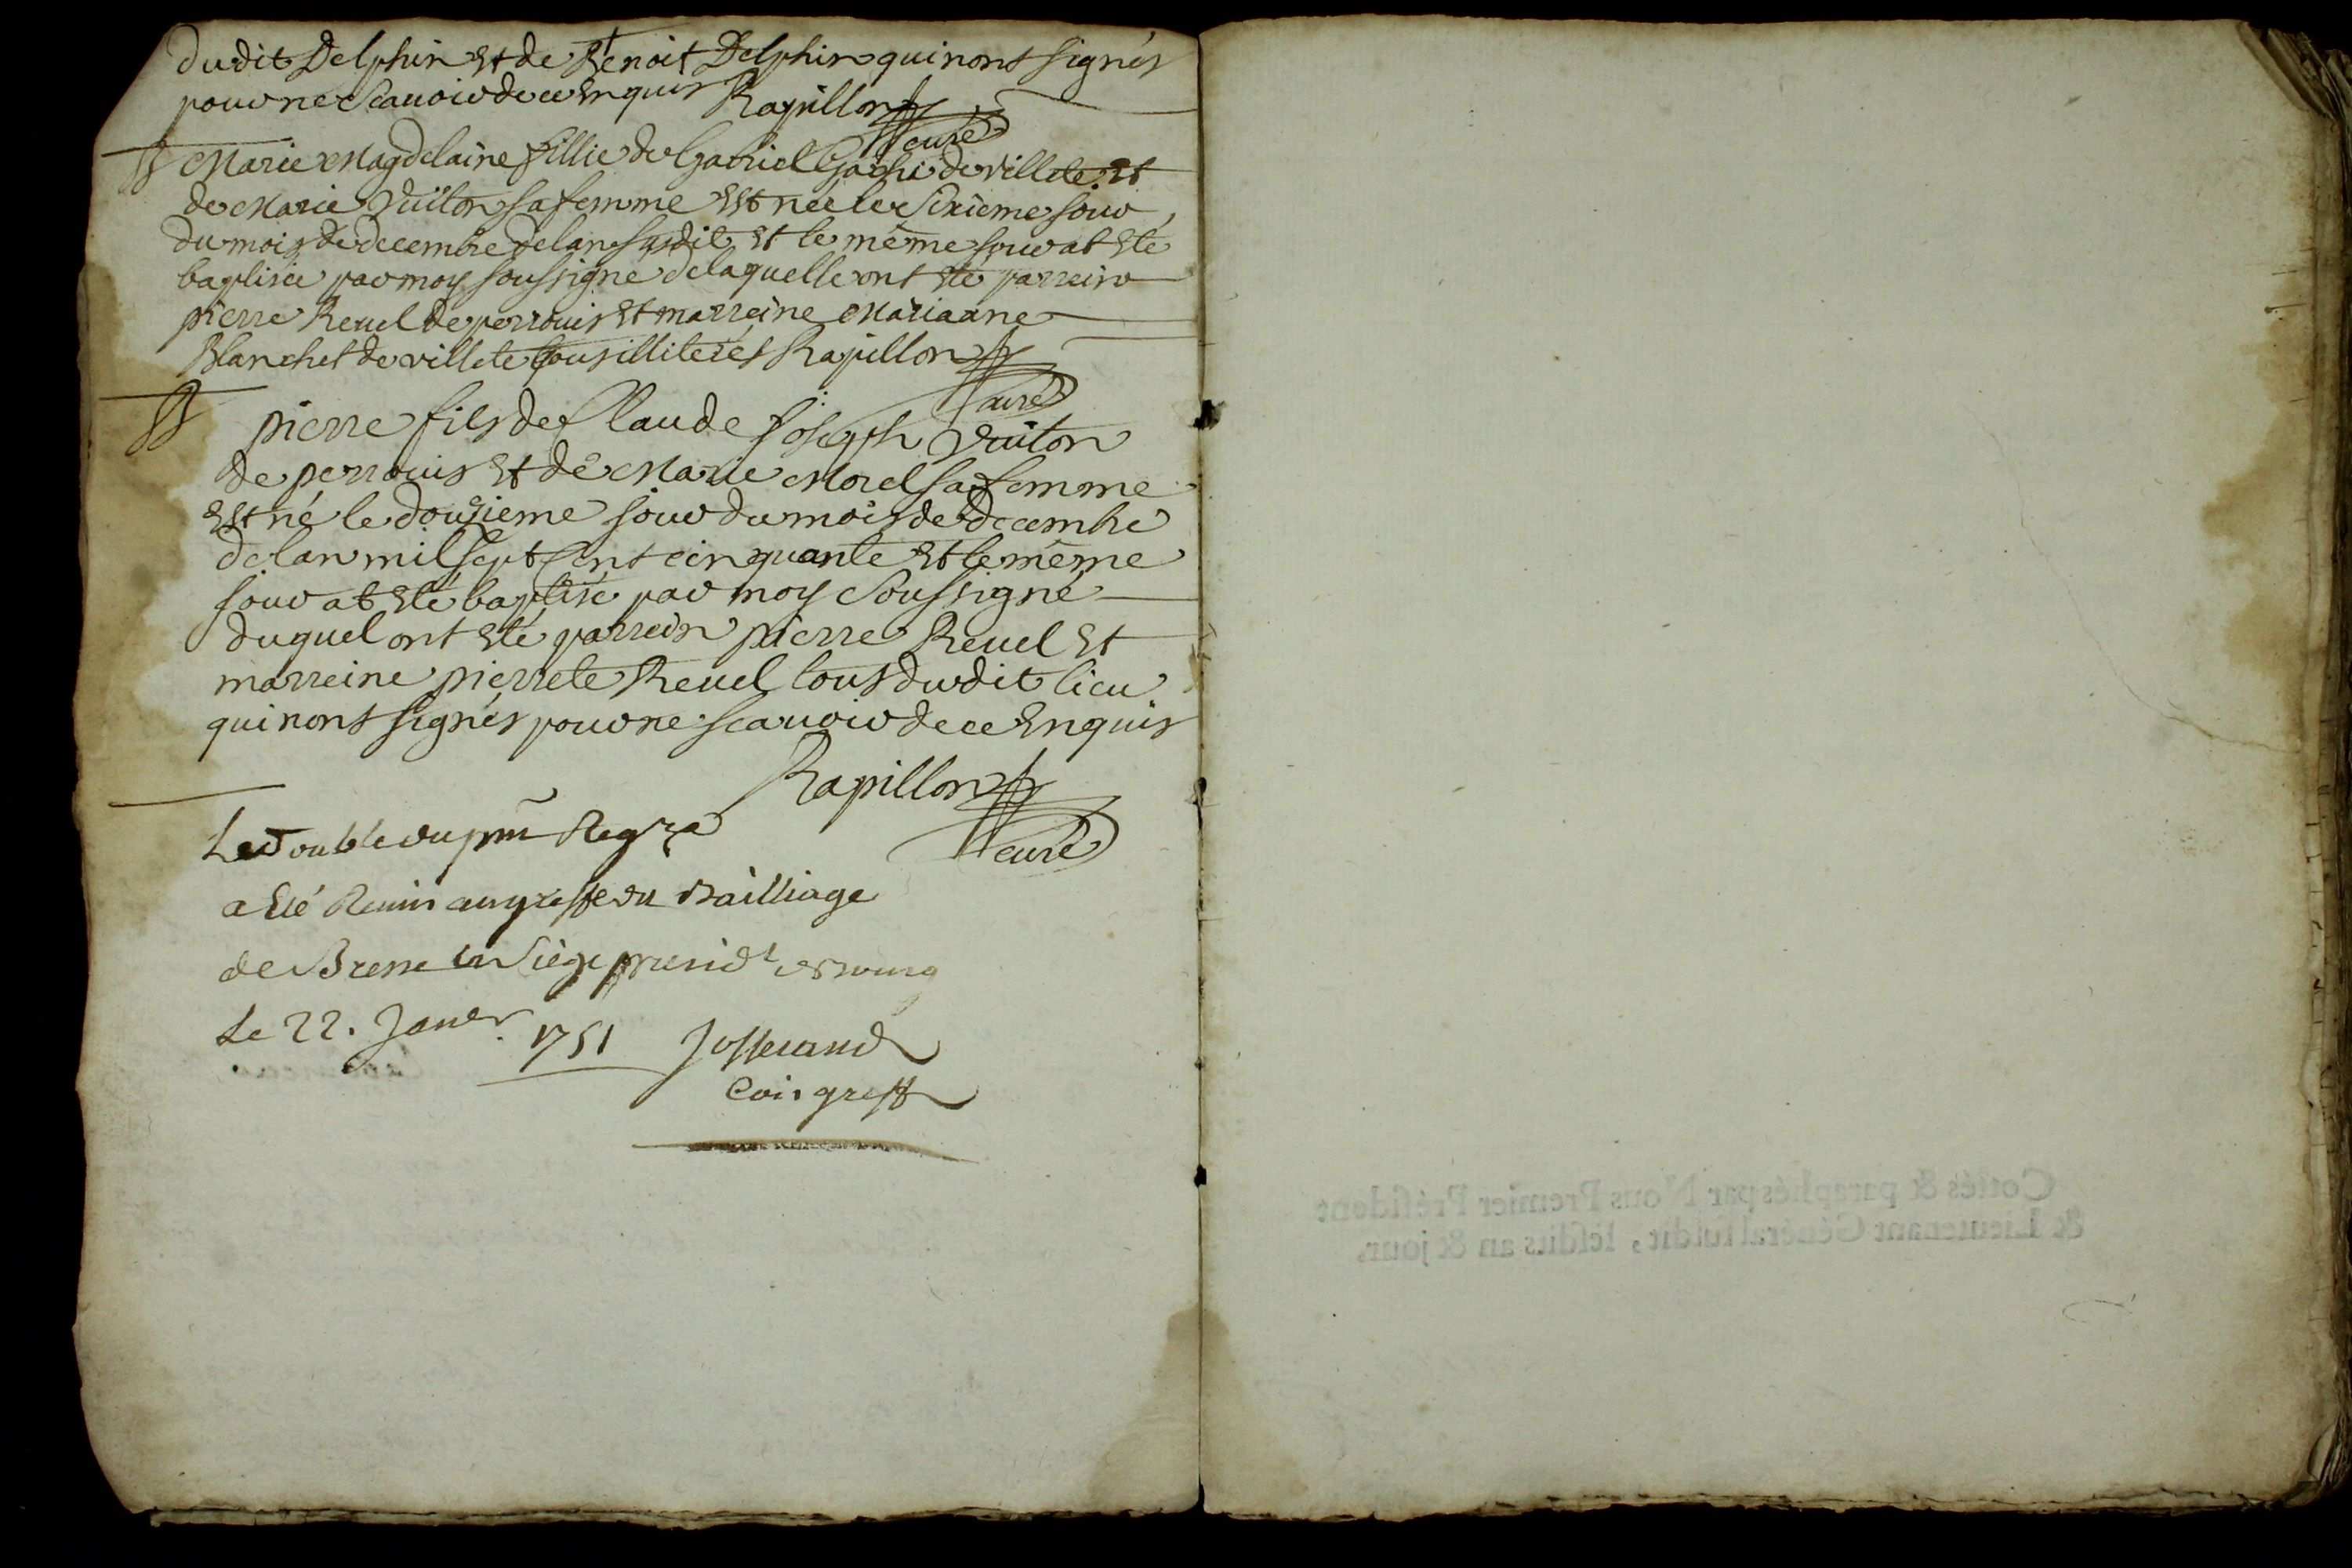 dudit Delphin et de Benoit Delphin qui nont signés
pour ne scauoir de ce enquis Rapillon
curé
B Marie Magdelaine fillie de Gabriel Gache de villete et
de Marie Vuiton sa femme est née le sixieme jour
du mois de decembre de lan susdit et le même jour at eté
baptisée par moy soussigné de laquelle ont eté parrein
pierre Reuel de perrouis et marreine Marianne
Blanchet de villete tous illiterés Rapillon
curé
B pierre fils de Claude joseph Vuiton
de perrouis et de Marie Morel sa femme
est né le douzieme jour du mois de decembre
de lan mil sept cent cinquante et le même
jour at eté baptisé par moy soussigné
duquel ont eté parrein pierre Reuel et
marreine pierrete Reuel tous dudit lieu
qui nont signés pour ne scauoir de ce enquis
Rapillon
curé
Le Double du pnt Regre
a eté Remis au greffe du Bailliage
de Bresse en Siege presidl de Bourg
Le 22. Janer. 1751 Josserand
Coi. greff
Cottés & paraphés par Nous Premier Préſident
& Lieutenant Général ſuſdit, leſdits an & jour.